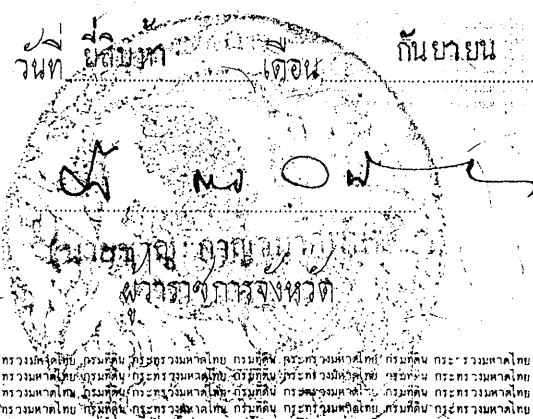 วันที่ ยี่สิบห้า เดือน กันยายน
ผู้ว่าราชการจังหวัด
ทรวงมหาดไทย กรมที่ดิน กระทรวงมหาดไทย กรมที่ดิน กระทรวงมหาดไทย กรมที่ดิน กระทรวงมหาดไทย
ทรวงมหาดไทย กรมที่ดิน กระทรวงมหาดไทย กรมที่ดิน กระทรวงมหาดไทย กรมที่ดิน กระทรวงมหาดไทย
ทรวงมหาดไทย กรมที่ดิน กระทรวงมหาดไทย กรมที่ดิน กระทรวงมหาดไทย กรมที่ดิน กระทรวงมหาดไทย
ทรวงมหาดไทย กรมที่ดิน กระทรวงมหาดไทย กรมที่ดิน กระทรวงมหาดไทย กรมที่ดิน กระทรวงมหาดไทย